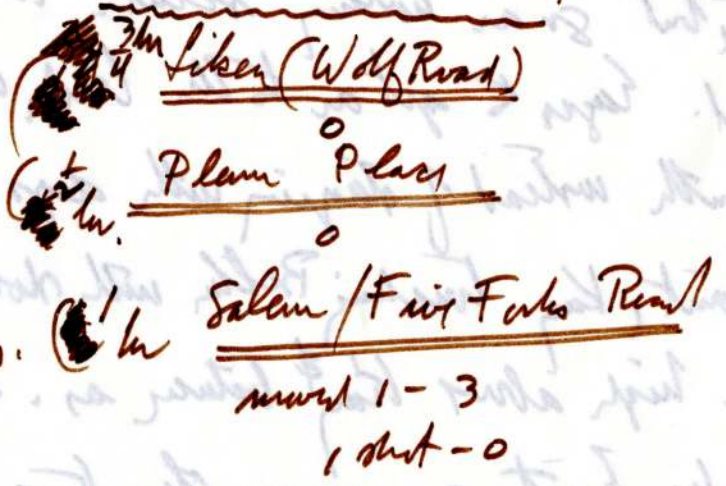 3/4 hr Liken (Wolf Road)
0
1/2 hr. Plum Place
0
1 hr Salem / Five Forks Road
moved 1 - 3
1 shot - 0